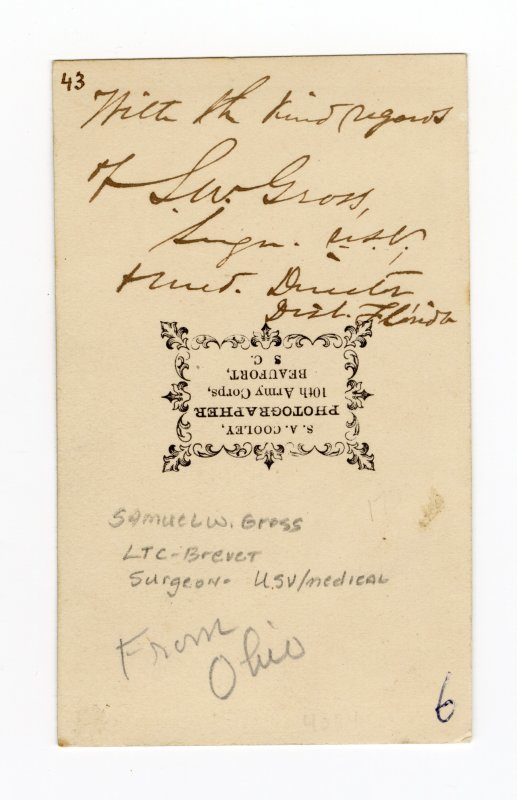 43
With the kind regards
of S.W. Gross,
Surgn. U.S.V.
& Med. Director
Dist. Florida
S. A. COOLEY,
PHOTOGRAPHER
10th Army Corps,
BEAUFORT,
S C.
Samuel W. Gross
LTC-Brevet
Surgeon- USV/medical
From
Ohio
6